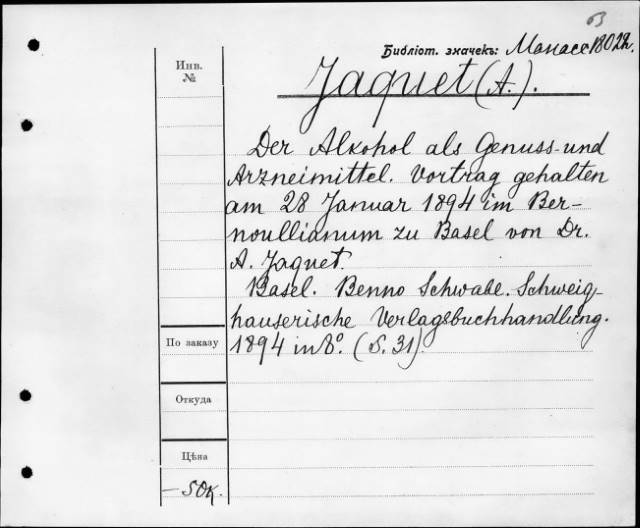 Библіот. значекъ: Манасе 18022.
Инв.
№
Jaquet (A.).
Der Alkohol als Genuss- und
Arzneimittel. Vortrag gehalten
am 28 Januar 1894 im Ber-
noullianum zu Basel von Dr.
A. Jaquet.
Basel. Benno Schwabe. Schweig-
hauserische Verlagsbuchhandlung.
1894 in 8°. (S. 31).
По заказу
Откуда
Цѣна
— 50к.